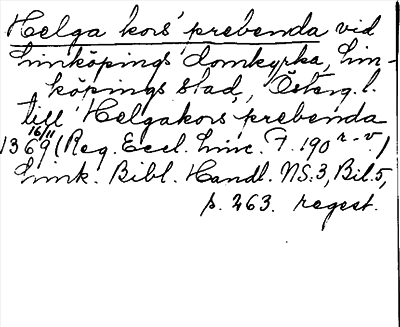 Helga kors' prebenda vid
Linköpings domkyrka, Lin-
köpings stad, Österg. l.
till Helgakors prebenda
16/11
1369 (Reg. Eccl. Linc. F. 190 r-v.)
Link. Bibl. Handl. NS:3, Bil. 5,
p. 263. regest.